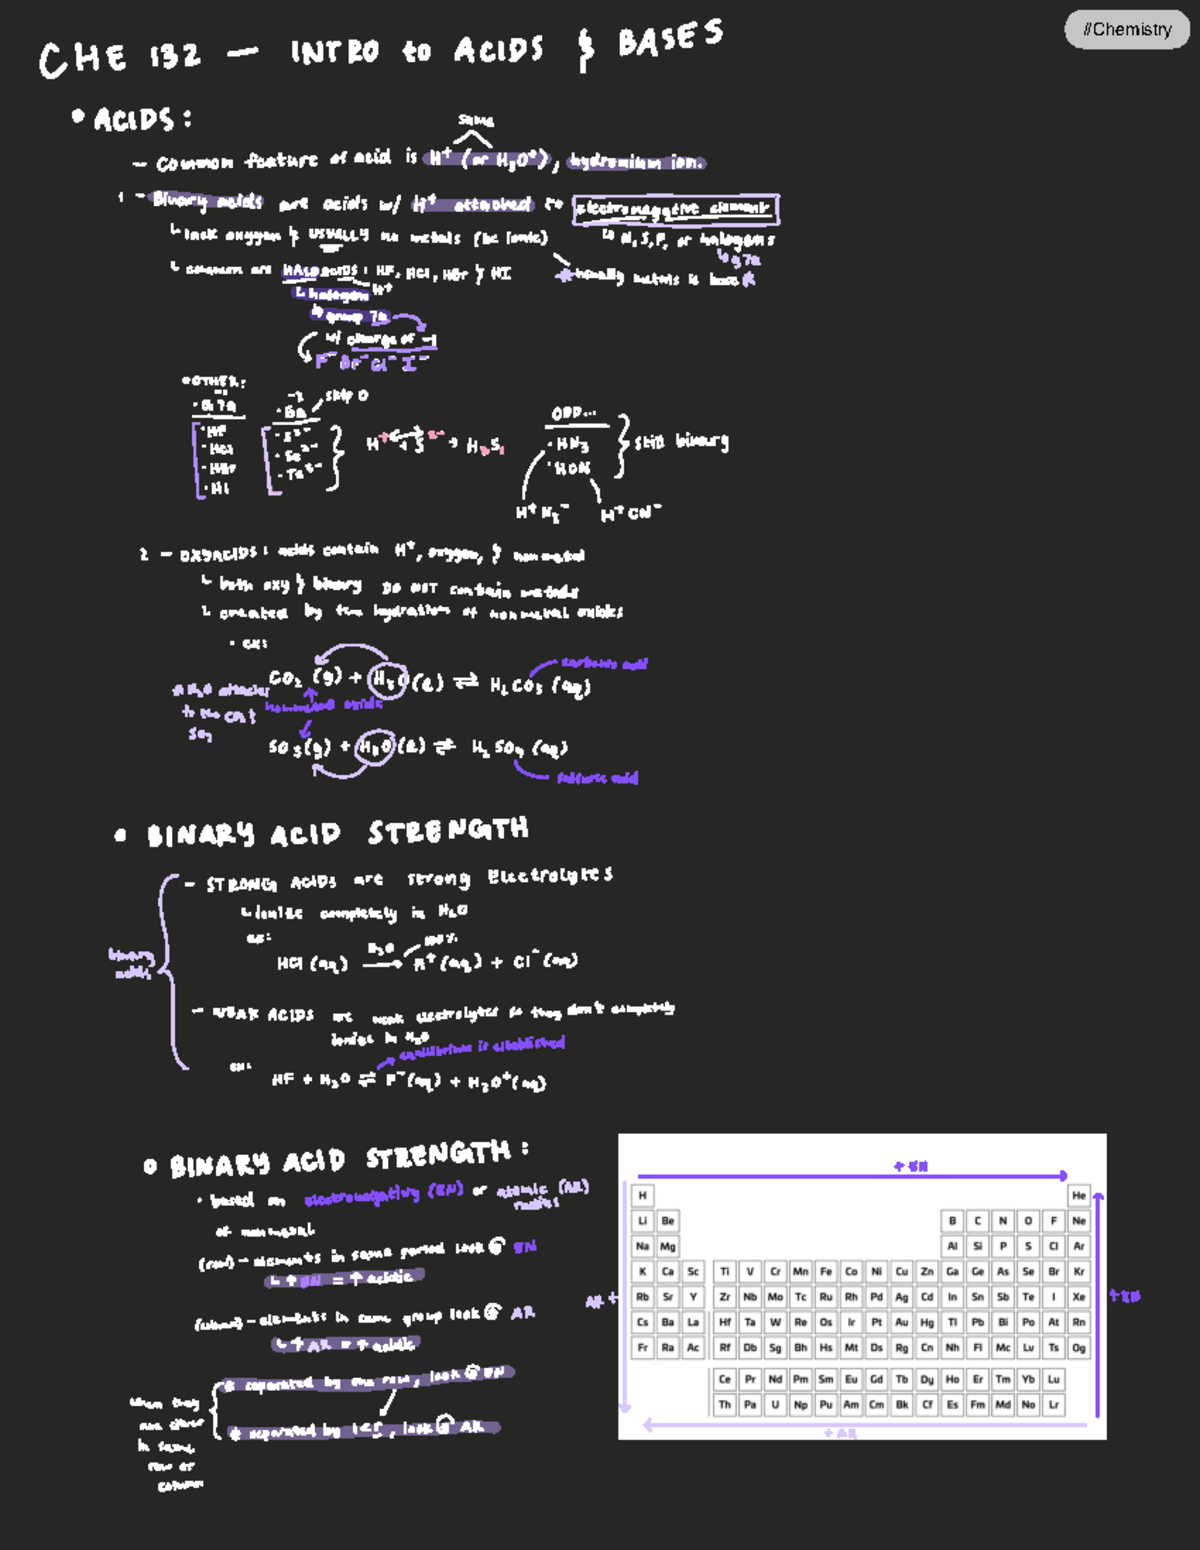 #Chemistry
CHE 132 — INTRO to ACIDS & BASES
• ACIDS:
same
- Common feature of acid is H⁺ (or H₃O⁺), hydronium ion.
1 - Binary acids are acids w/ H⁺ attached to electronegative element
↳ lack oxygen & USUALLY no metals (be ionic)
↳ N, S, P, or halogens
↳ g 7a
↳ common are HALOACIDS: HF, HCl, HBr & HI
* usually metals is base *
↳ halogen H⁺
↳ group 7a
w/ charge of -1
F⁻ Br⁻ Cl⁻ I⁻
• OTHER:
-1
• G 7a
-2
• 6a
skip O
• HF
• HCl
• HBr
• HI
• S²⁻
• Se²⁻
• Te²⁻
H⁺ + S²⁻ → H₂S
ODD...
• HN₃
• HCN
still binary
H⁺ N₃⁻
H⁺ CN⁻
2 - OXYACIDS: acids contain H⁺, oxygen, & nonmetal
↳ both oxy & binary DO NOT contain metals
↳ created by the hydration of nonmetal oxides
• ex:
CO₂ (g) + H₂O (l) ⇌ H₂CO₃ (aq)
carbonic acid
* H₂O attaches to the CO₂ & SO₃
nonmetal oxide
SO₃ (g) + H₂O (l) ⇌ H₂SO₄ (aq)
sulfuric acid
• BINARY ACID STRENGTH
binary acids
- STRONG ACIDS are strong Electrolytes
↳ ionize completely in H₂O
ex:
HCl (aq) → H⁺ (aq) + Cl⁻ (aq)
H₂O
100%
- WEAK ACIDS are weak electrolytes so they don't completely
ionize in H₂O
equilibrium is established
ex:
HF + H₂O ⇌ F⁻ (aq) + H₃O⁺ (aq)
• BINARY ACID STRENGTH:
• based on electronegativity (EN) or atomic radius (AR)
of nonmetal
(row) - elements in same period look @ EN
↳ ↑ EN = ↑ acidic
(column) - elements in same group look @ AR
↳ ↑ AR = ↑ acidic
when they are close in same row or column
* separated by one row, look @ EN
* separated by 1 ≤, look @ AR
+ EN
H He
Li Be B C N O F Ne
Na Mg Al Si P S Cl Ar
K Ca Sc Ti V Cr Mn Fe Co Ni Cu Zn Ga Ge As Se Br Kr
AR +
Rb Sr Y Zr Nb Mo Tc Ru Rh Pd Ag Cd In Sn Sb Te I Xe
+ EN
Cs Ba La Hf Ta W Re Os Ir Pt Au Hg Tl Pb Bi Po At Rn
Fr Ra Ac Rf Db Sg Bh Hs Mt Ds Rg Cn Nh Fl Mc Lv Ts Og
Ce Pr Nd Pm Sm Eu Gd Tb Dy Ho Er Tm Yb Lu
Th Pa U Np Pu Am Cm Bk Cf Es Fm Md No Lr
+ AR